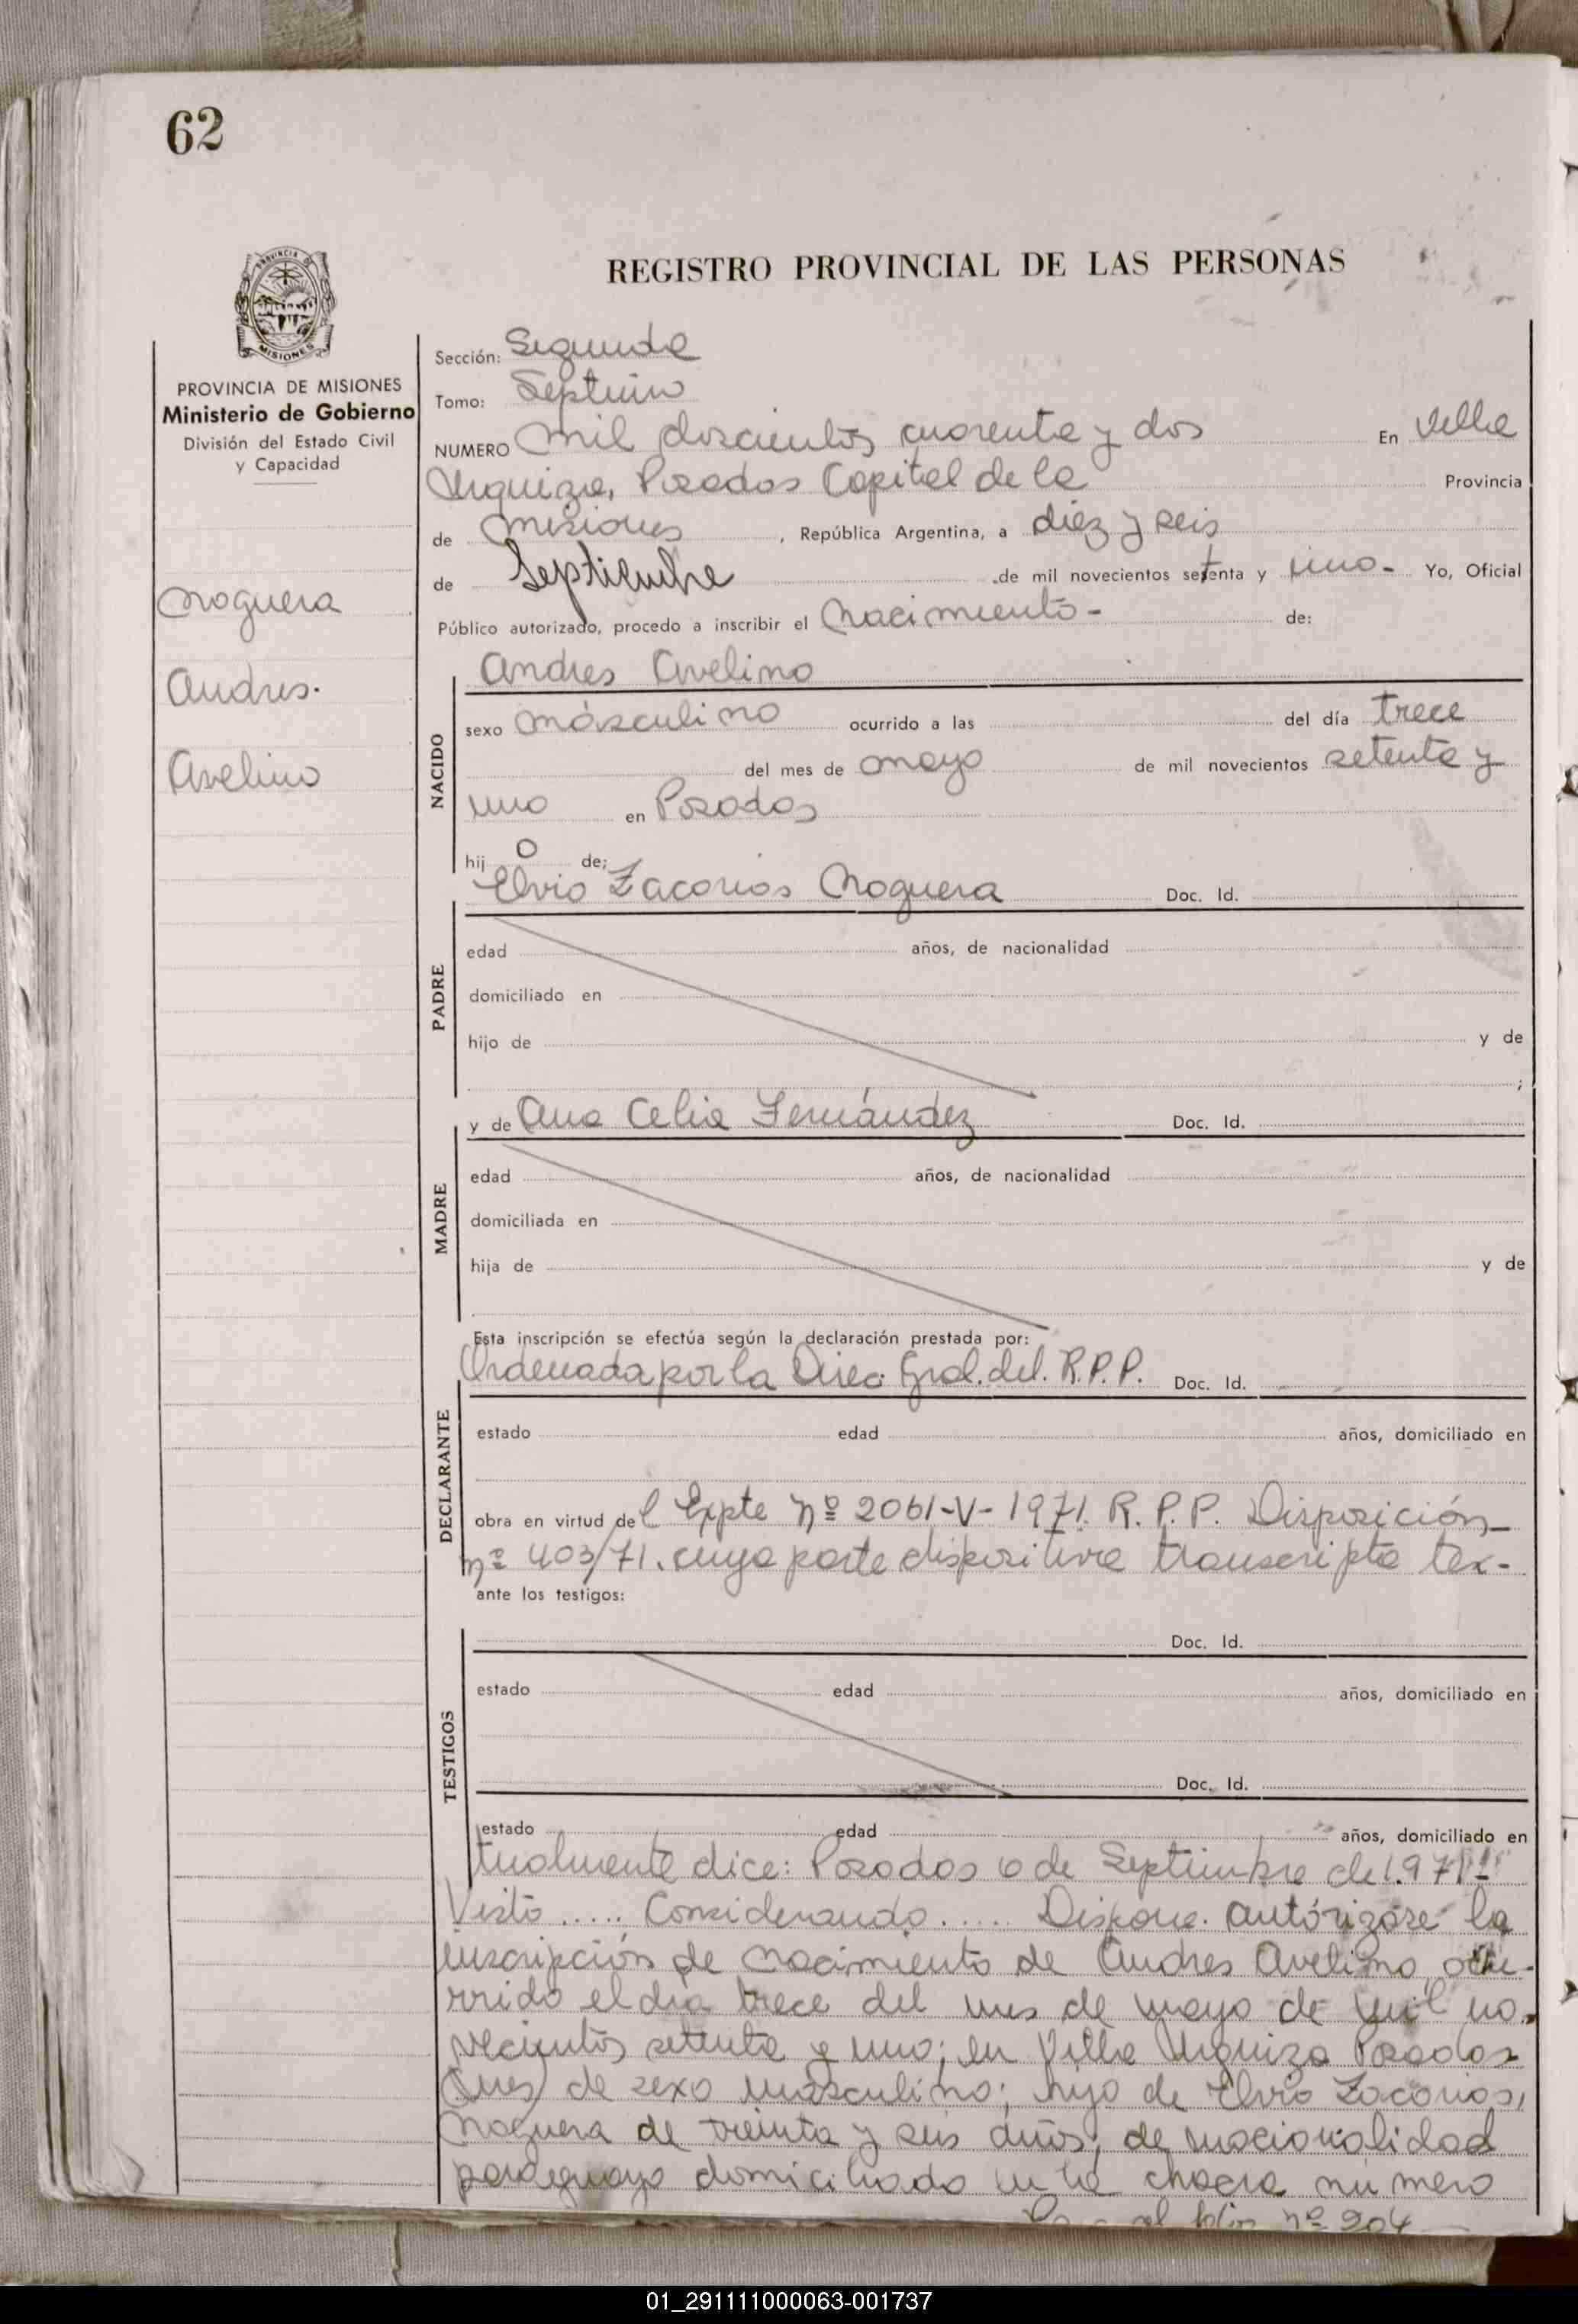 62
REGISTRO PROVINCIAL DE LAS PERSONAS
PROVINCIA DE MISIONES
Ministerio de Gobierno
División del Estado Civil
y Capacidad
Noguera
Andres.
Avelino
Sección: Segunda
Tomo: Septimo
NUMERO Mil doscientos cuarenta y dos En Villa
Urquiza, Posadas Capital de la Provincia
de Misiones, República Argentina, a diez y seis
de Septiembre de mil novecientos setenta y uno.- Yo, Oficial
Público autorizado, procedo a inscribir el Nacimiento- de:
Andres Avelino
NACIDO
sexo másculino ocurrido a las del día trece
del mes de mayo de mil novecientos setenta y
uno en Posadas
hijo de:
Elvio Zacarias Noguera Doc. Id.
PADRE
edad años, de nacionalidad
domiciliado en
hijo de y de
;
y de Ana Celia Fernández Doc. Id.
MADRE
edad años, de nacionalidad
domiciliada en
hija de y de
Esta inscripción se efectúa según la declaración prestada por:
Ordenada por la Direc. Gral. del. R.P.P. Doc. Id.
DECLARANTE
estado edad años, domiciliado en
obra en virtud del Expte Nº 2061-V-1971. R.P.P. Disposición
nº 403/71. cuya parte dispositiva transcripta tex-
ante los testigos:
Doc. Id.
TESTIGOS
estado edad años, domiciliado en
Doc. Id.
estado edad años, domiciliado en
tualmente dice: Posadas 6 de Septiembre de 1.971-
Visto ..... Considerando ..... Dispone. autórizase la
inscripción de nacimiento de Andres Avelino, ocu-
rrido el dia trece del mes de mayo de mil no-
vecientos setenta y uno; en Villa Urquiza Posadas
de sexo masculino; hijo de Elvio Zacarias,
Noguera de treinta y seis años, de nacionalidad
paraguayo domiciliado en la chacra número
al folio nº 204
01_291111000063-001737